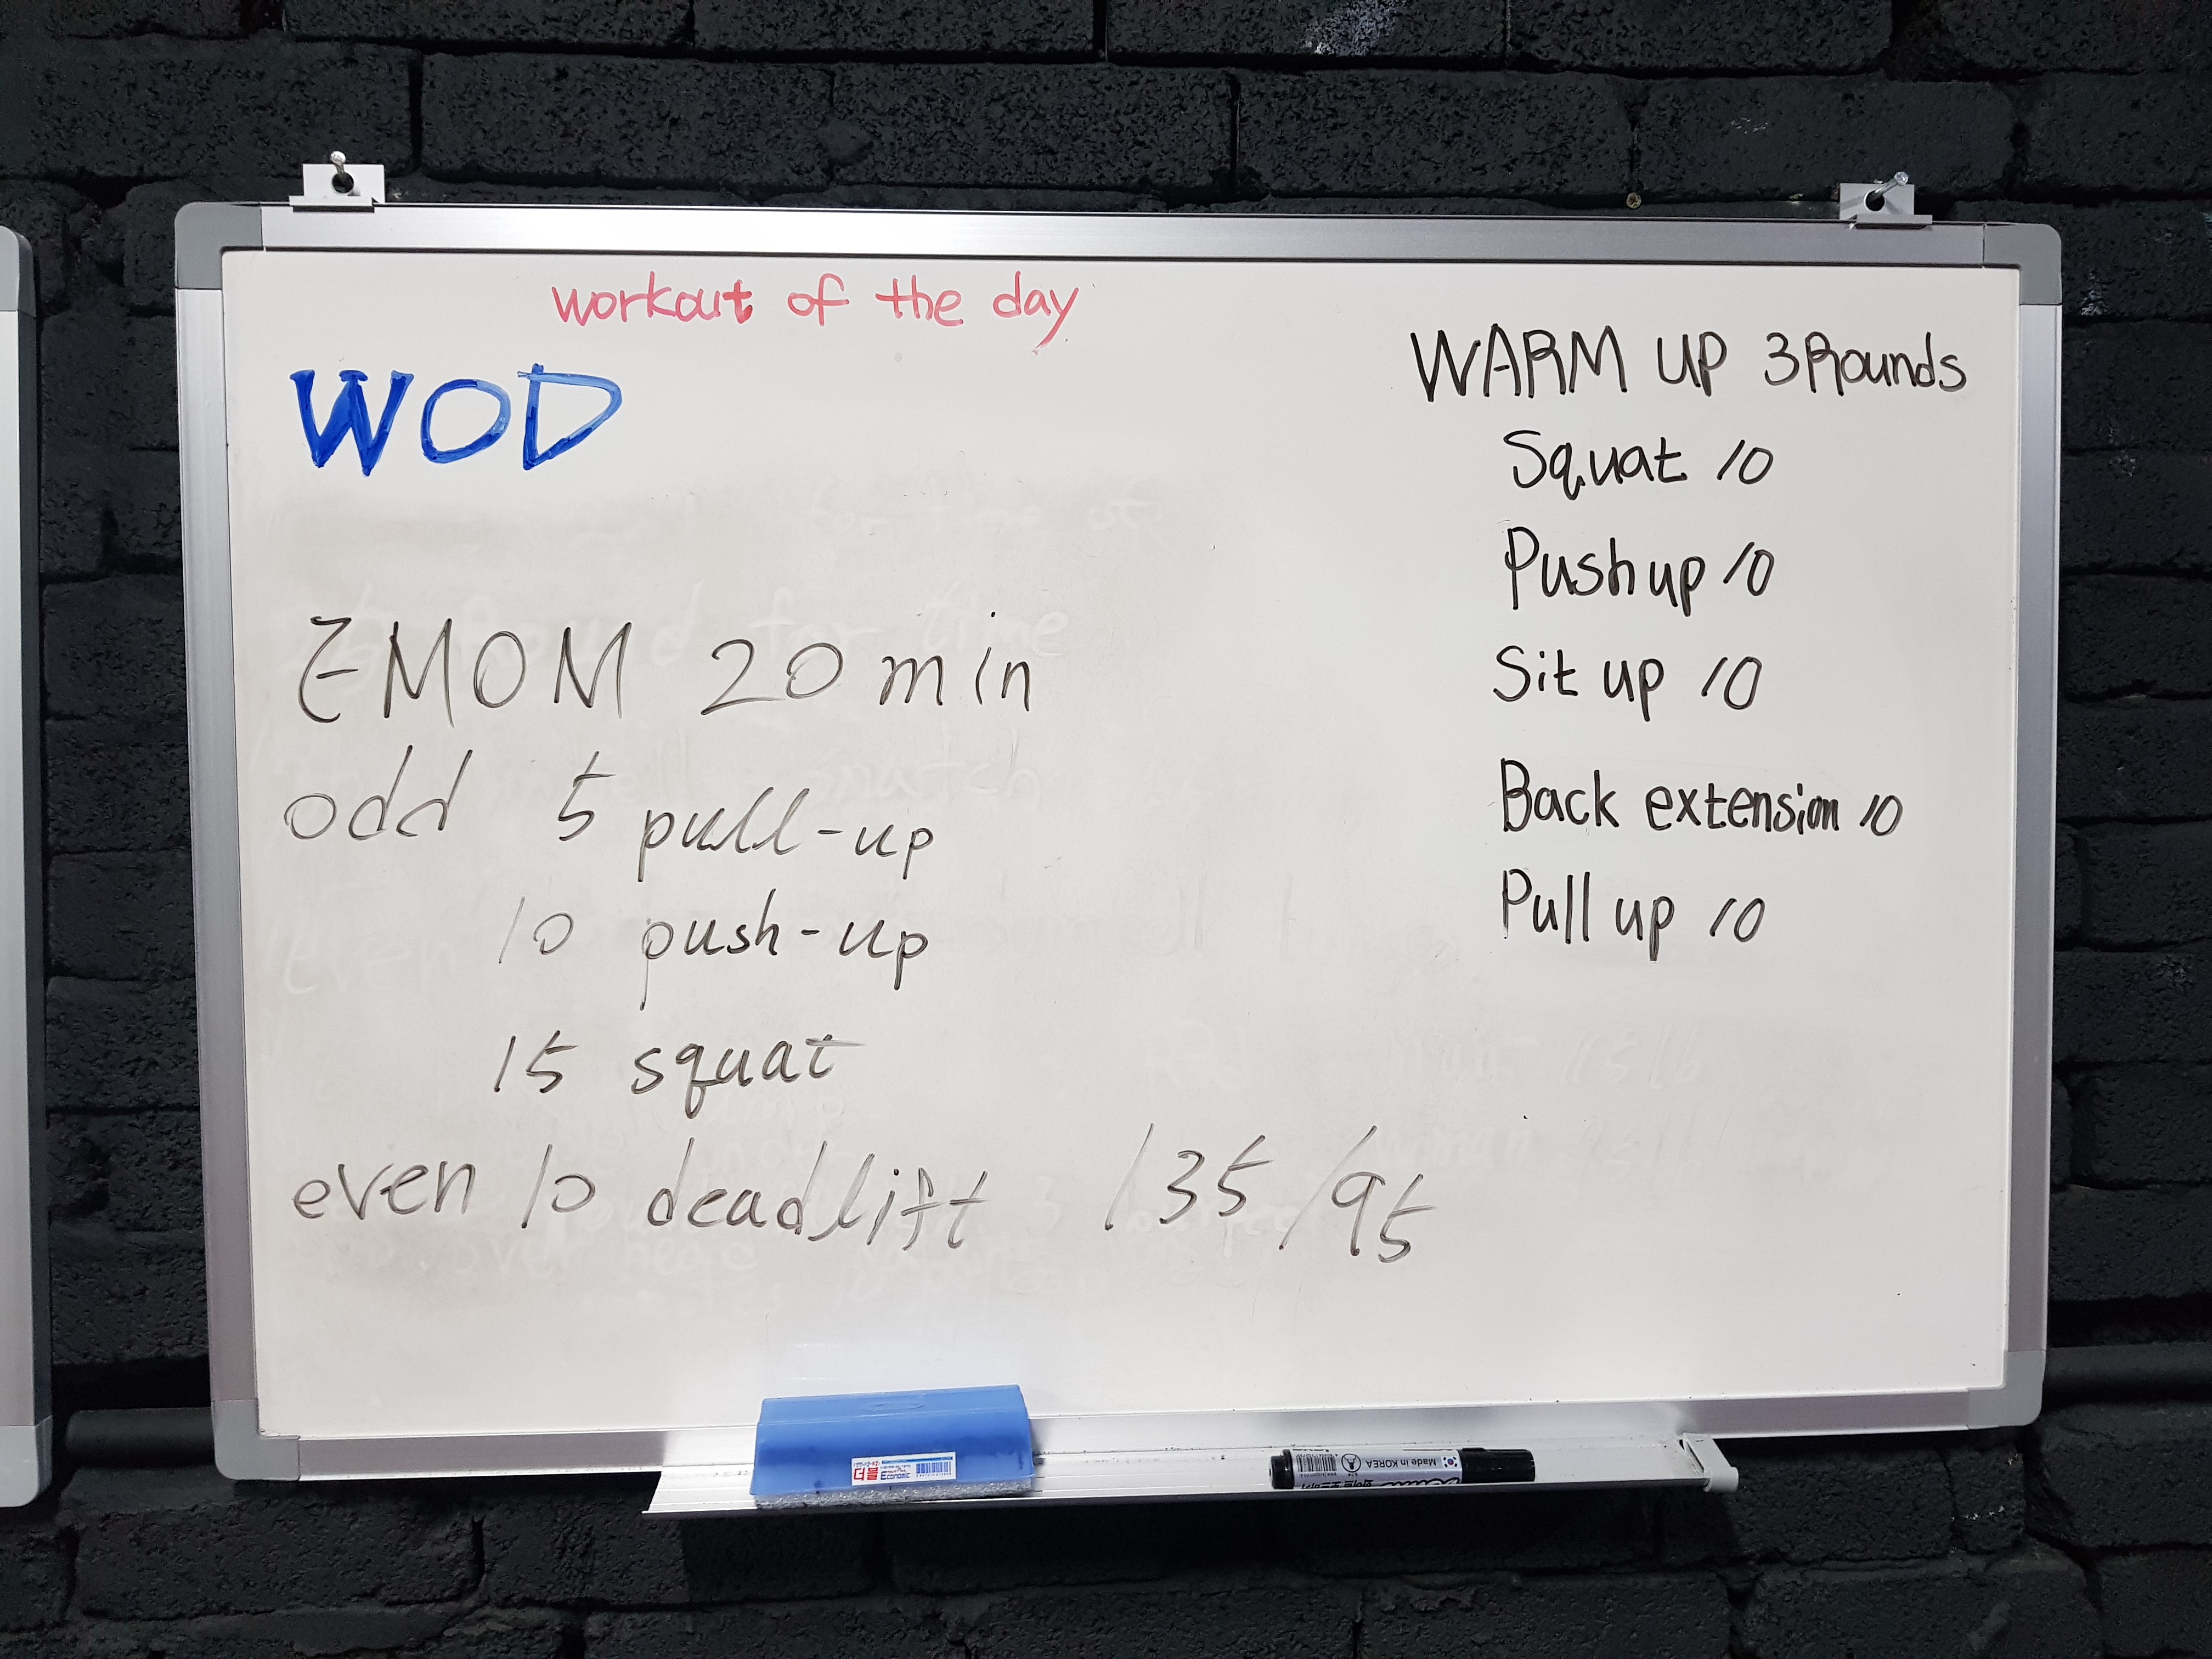 workout of the day
WOD
EMOM 20 min
odd 5 pull-up
10 push-up
15 squat
even 10 deadlift 135/95
WARM UP 3Rounds
Squat 10
Push up 10
Sit up 10
Back extension 10
Pull up 10
더블
Economic
Made in KOREA